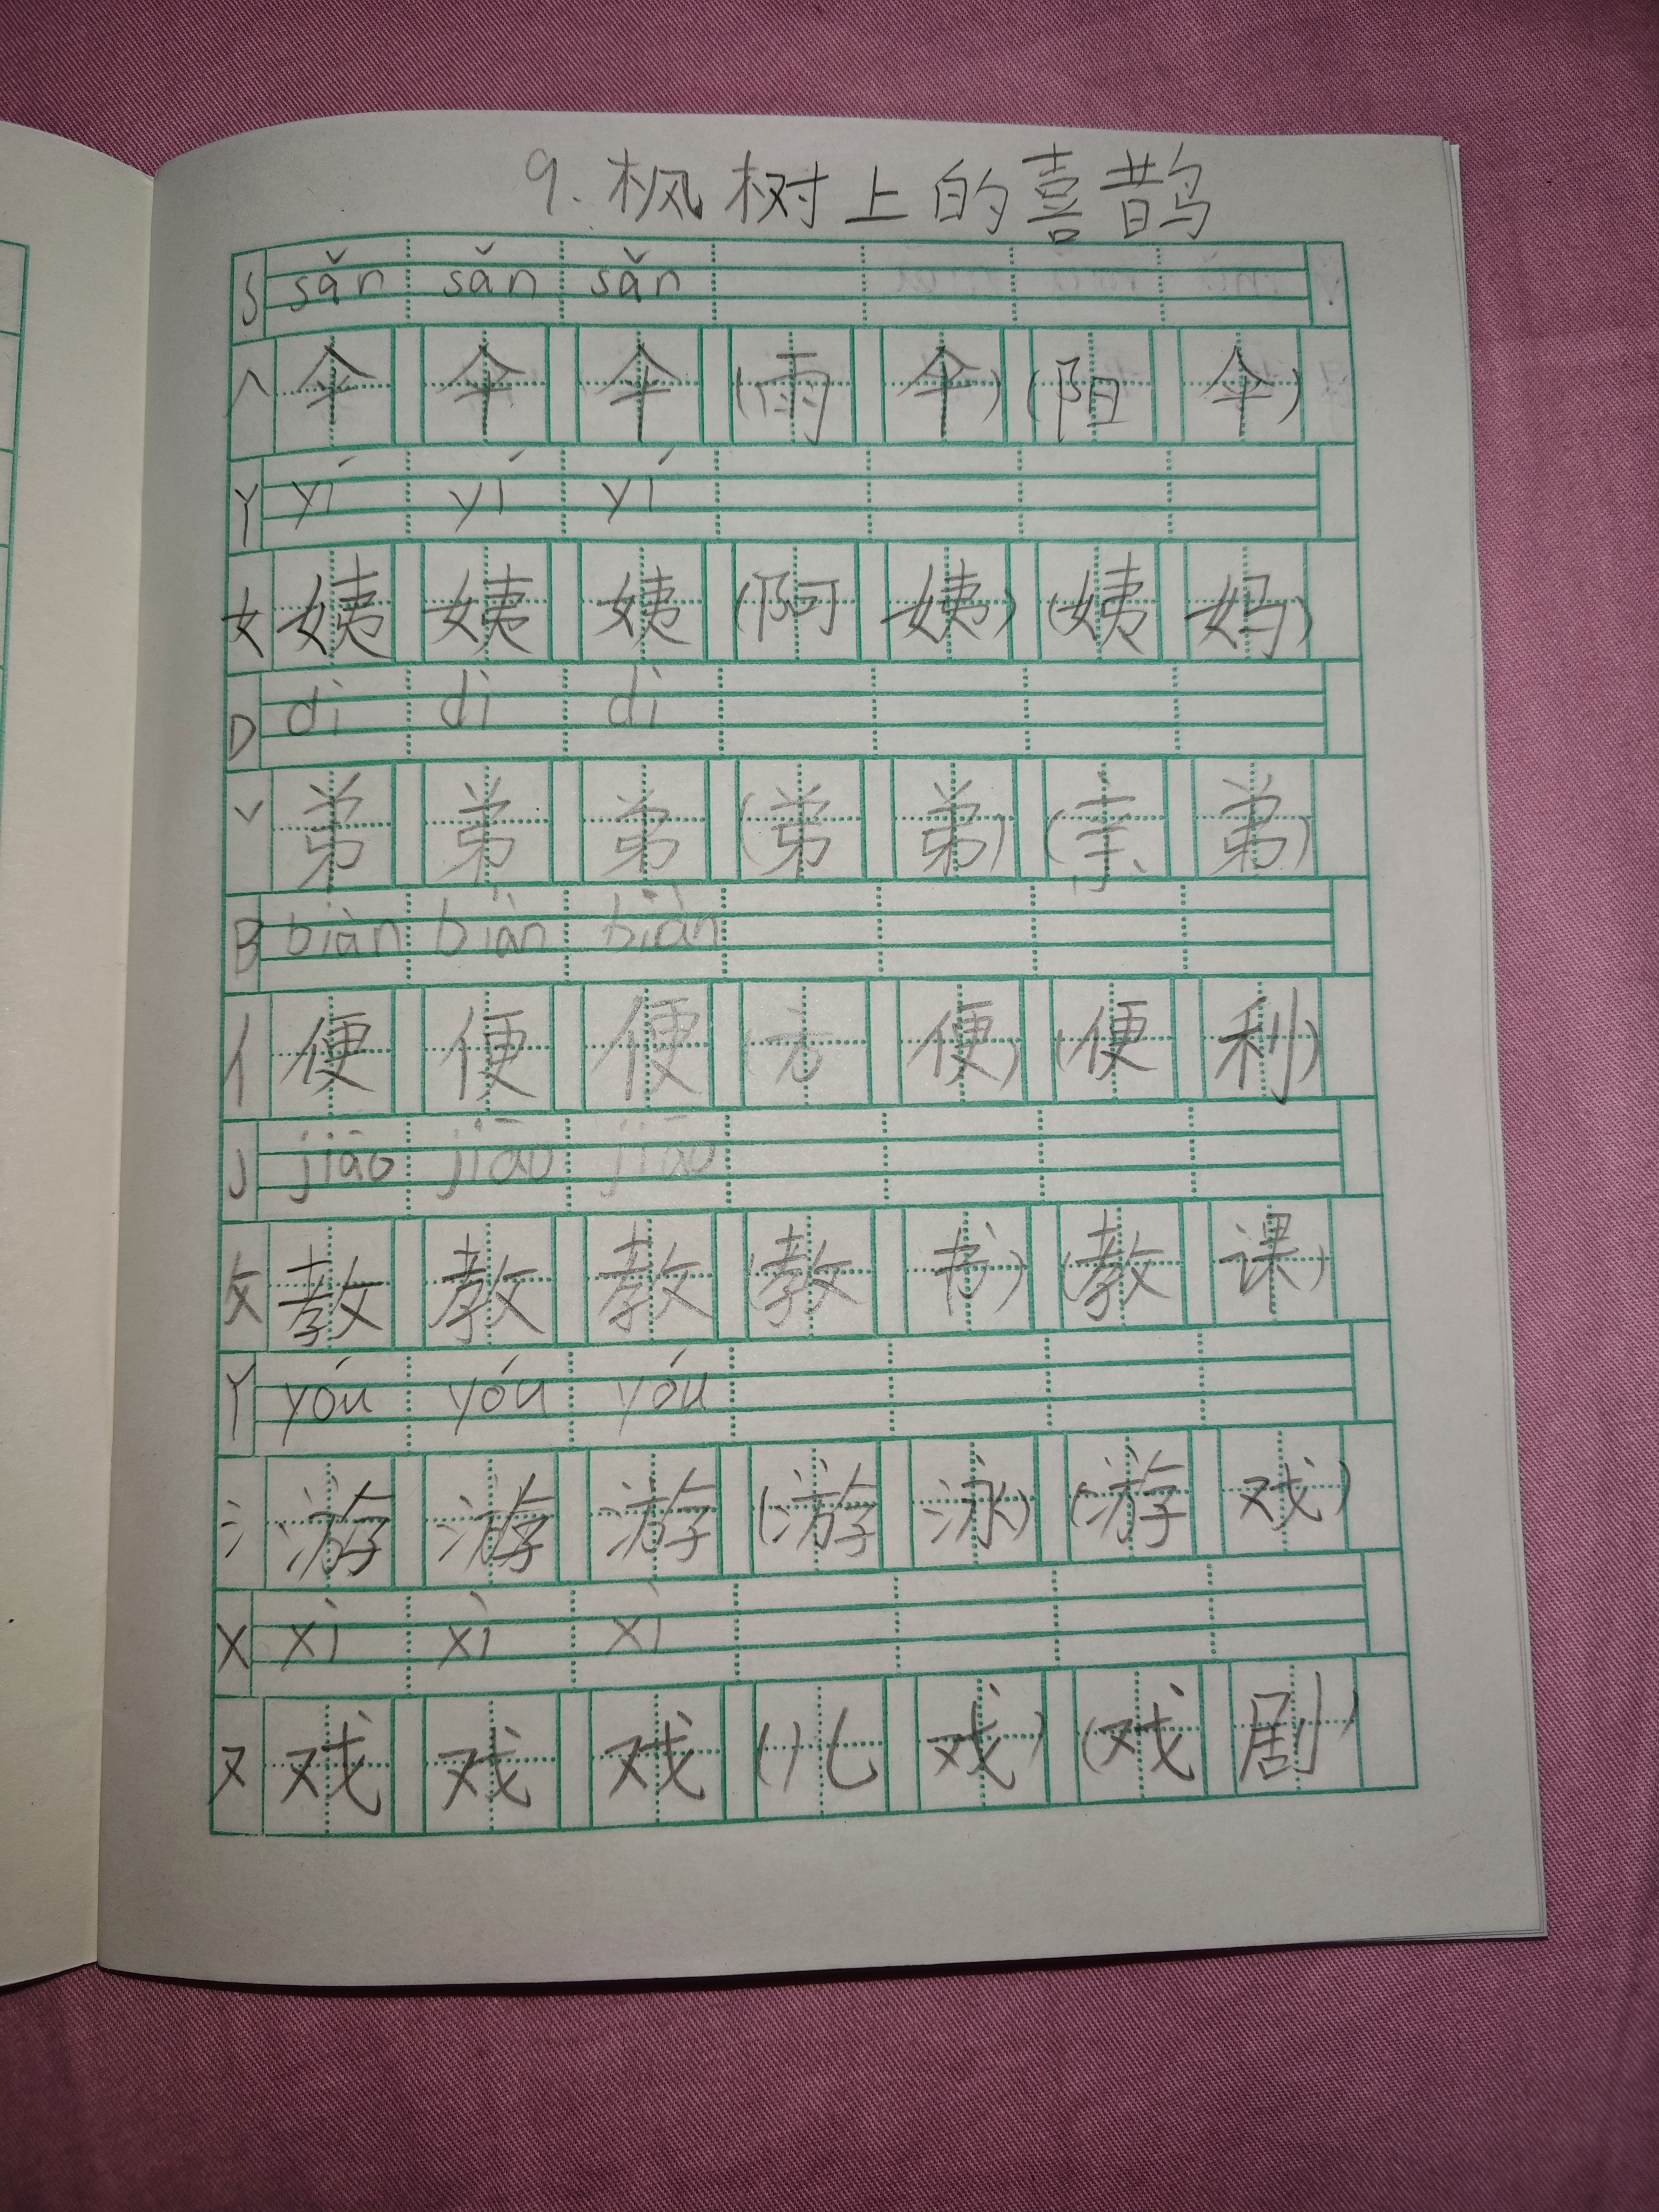 9. 枫树上的喜鹊
S sǎn sǎn sǎn
人 伞 伞 伞 (雨 伞) (阳 伞)
Y yí yí yí
女 姨 姨 姨 (阿 姨) (姨 妈)
D dì dì dì
丷 弟 弟 弟 (弟 弟) (亲 弟)
B biàn biàn biàn
亻 便 便 便 (方 便) (便 利)
J jiāo jiāo jiāo
攵 教 教 教 (教 书) (教 课)
Y yóu yóu yóu
氵 游 游 游 (游 泳) (游 戏)
X xì xì xì
又 戏 戏 戏 (儿 戏) (戏 剧)